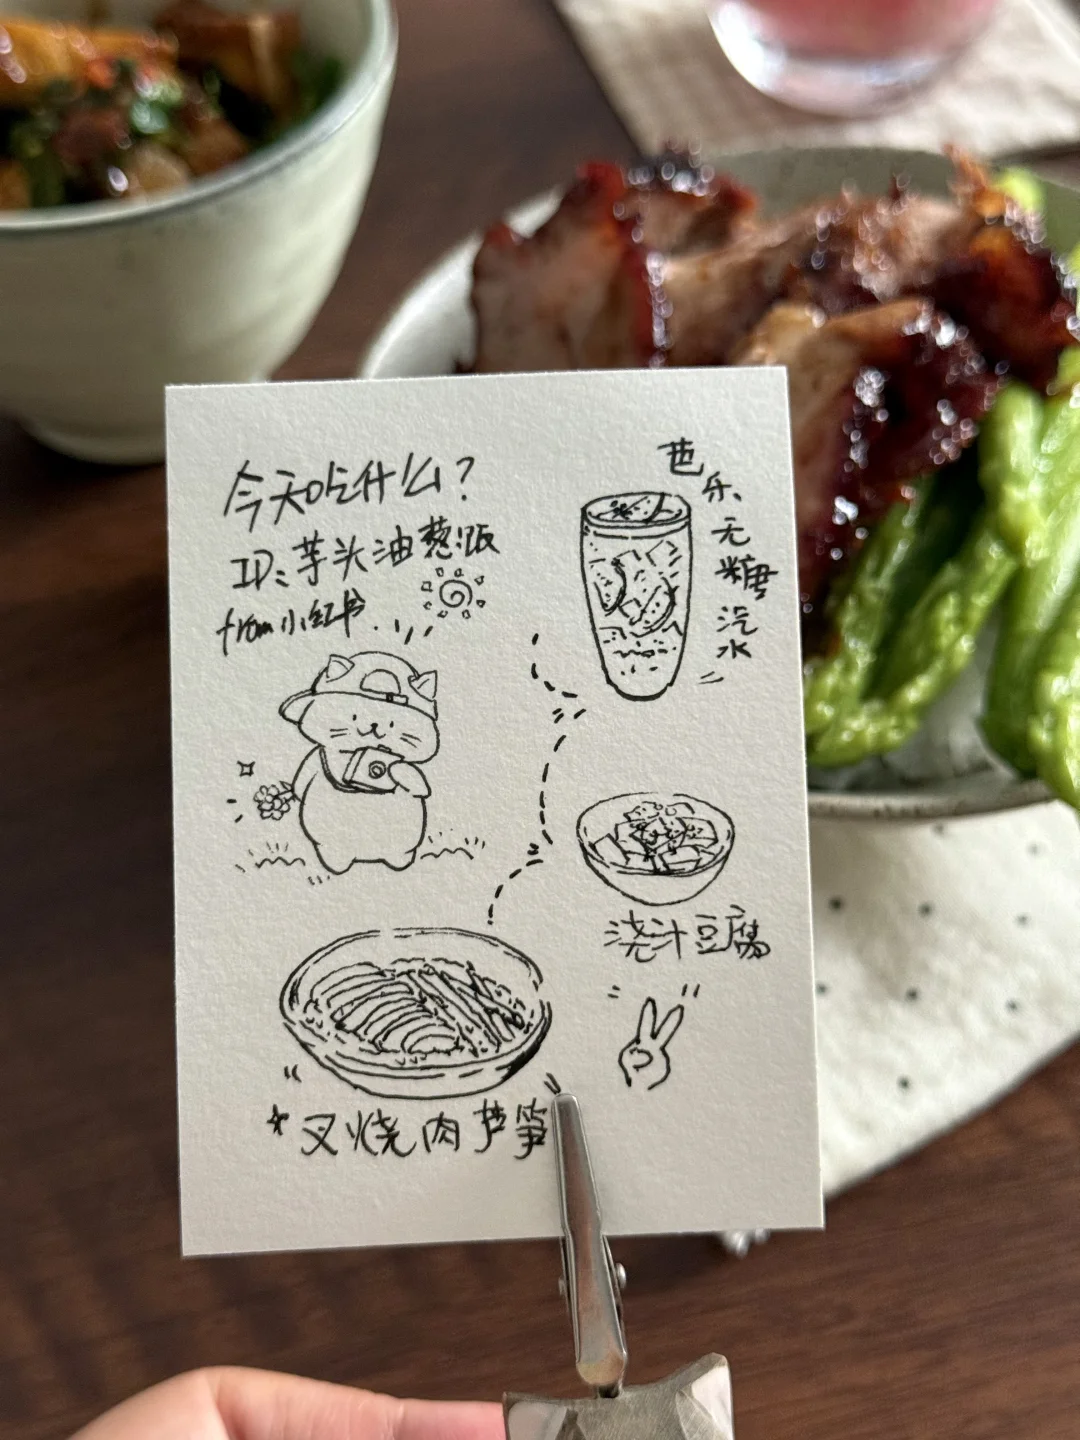 今天吃什么?
ID:芋头油葱饭
from小红书.
芭乐无糖汽水
浇汁豆腐
*叉烧肉芦笋